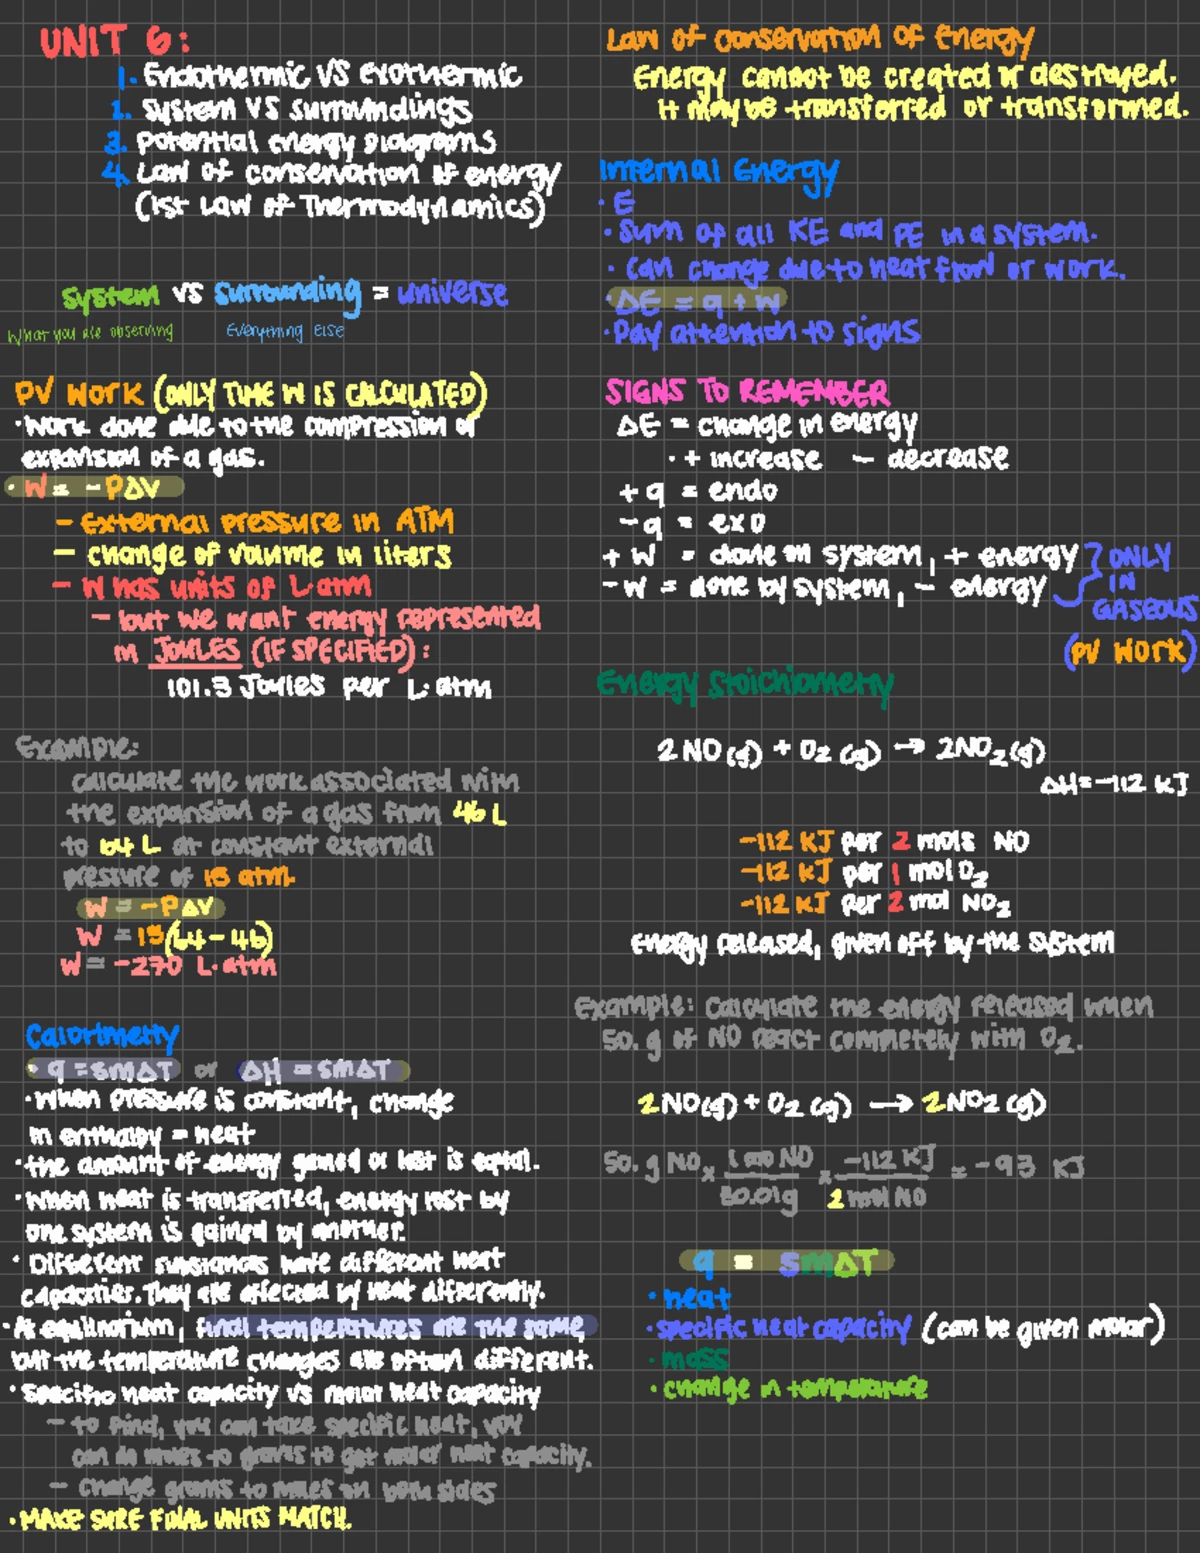 UNIT 6:
1. Endothermic VS exothermic
2. System VS surroundings
3. Potential energy Diagrams
4. Law of conservation of energy
(1st Law of Thermodynamics)
system vs surrounding = universe
What you are observing
Everything else
PV WORK (ONLY TIME W IS CALCULATED)
• Work done due to the compression or
expansion of a gas.
• W = -PΔV
- External pressure in ATM
- change of volume in liters
- W has units of L·atm
- but we want energy represented
in JOULES (IF SPECIFIED):
101.3 Joules per L·atm
Example:
calculate the work associated with
the expansion of a gas from 46 L
to 64 L at constant external
pressure of 15 atm.
W = -PΔV
W = 15(64-46)
W = -270 L·atm
Calorimetry
• q = smΔT or ΔH = smΔT
• When pressure is constant, change
in enthalpy = heat
• the amount of energy gained or lost is equal.
• When heat is transferred, energy lost by
one system is gained by another.
• Different substances have different heat
capacities. They are affected by heat differently.
• At equilibrium, final temperatures are the same,
but the temperature changes are often different.
• Specific heat capacity vs molar heat capacity
- to find, you can take specific heat, you
can do moles to grams to get molar heat capacity.
- change grams to moles on both sides
• MAKE SURE FINAL UNITS MATCH.
Law of conservation of Energy
Energy cannot be created or destroyed.
It may be transferred or transformed.
Internal Energy
• E
• Sum of all KE and PE in a system.
• Can change due to heat flow or work.
• ΔE = q + w
• Pay attention to signs
SIGNS TO REMEMBER
ΔE = change in energy
• + increase - decrease
+ q = endo
- q = exo
+ W = done on system, + energy
- W = done by system, - energy
} ONLY
IN
GASEOUS
(PV WORK)
Energy Stoichiometry
2NO(g) + O₂(g) → 2NO₂(g)
ΔH = -112 KJ
-112 KJ per 2 mols NO
-112 KJ per 1 mol O₂
-112 KJ per 2 mol NO₂
Energy released, given off by the system
Example: Calculate the energy released when
50. g of NO react completely with O₂.
2NO(g) + O₂(g) → 2NO₂(g)
50. g NO x 1 mol NO / 30.01g x -112 KJ / 2 mol NO = -93 KJ
q = smΔT
• heat
• specific heat capacity (can be given molar)
• mass
• change in temperature